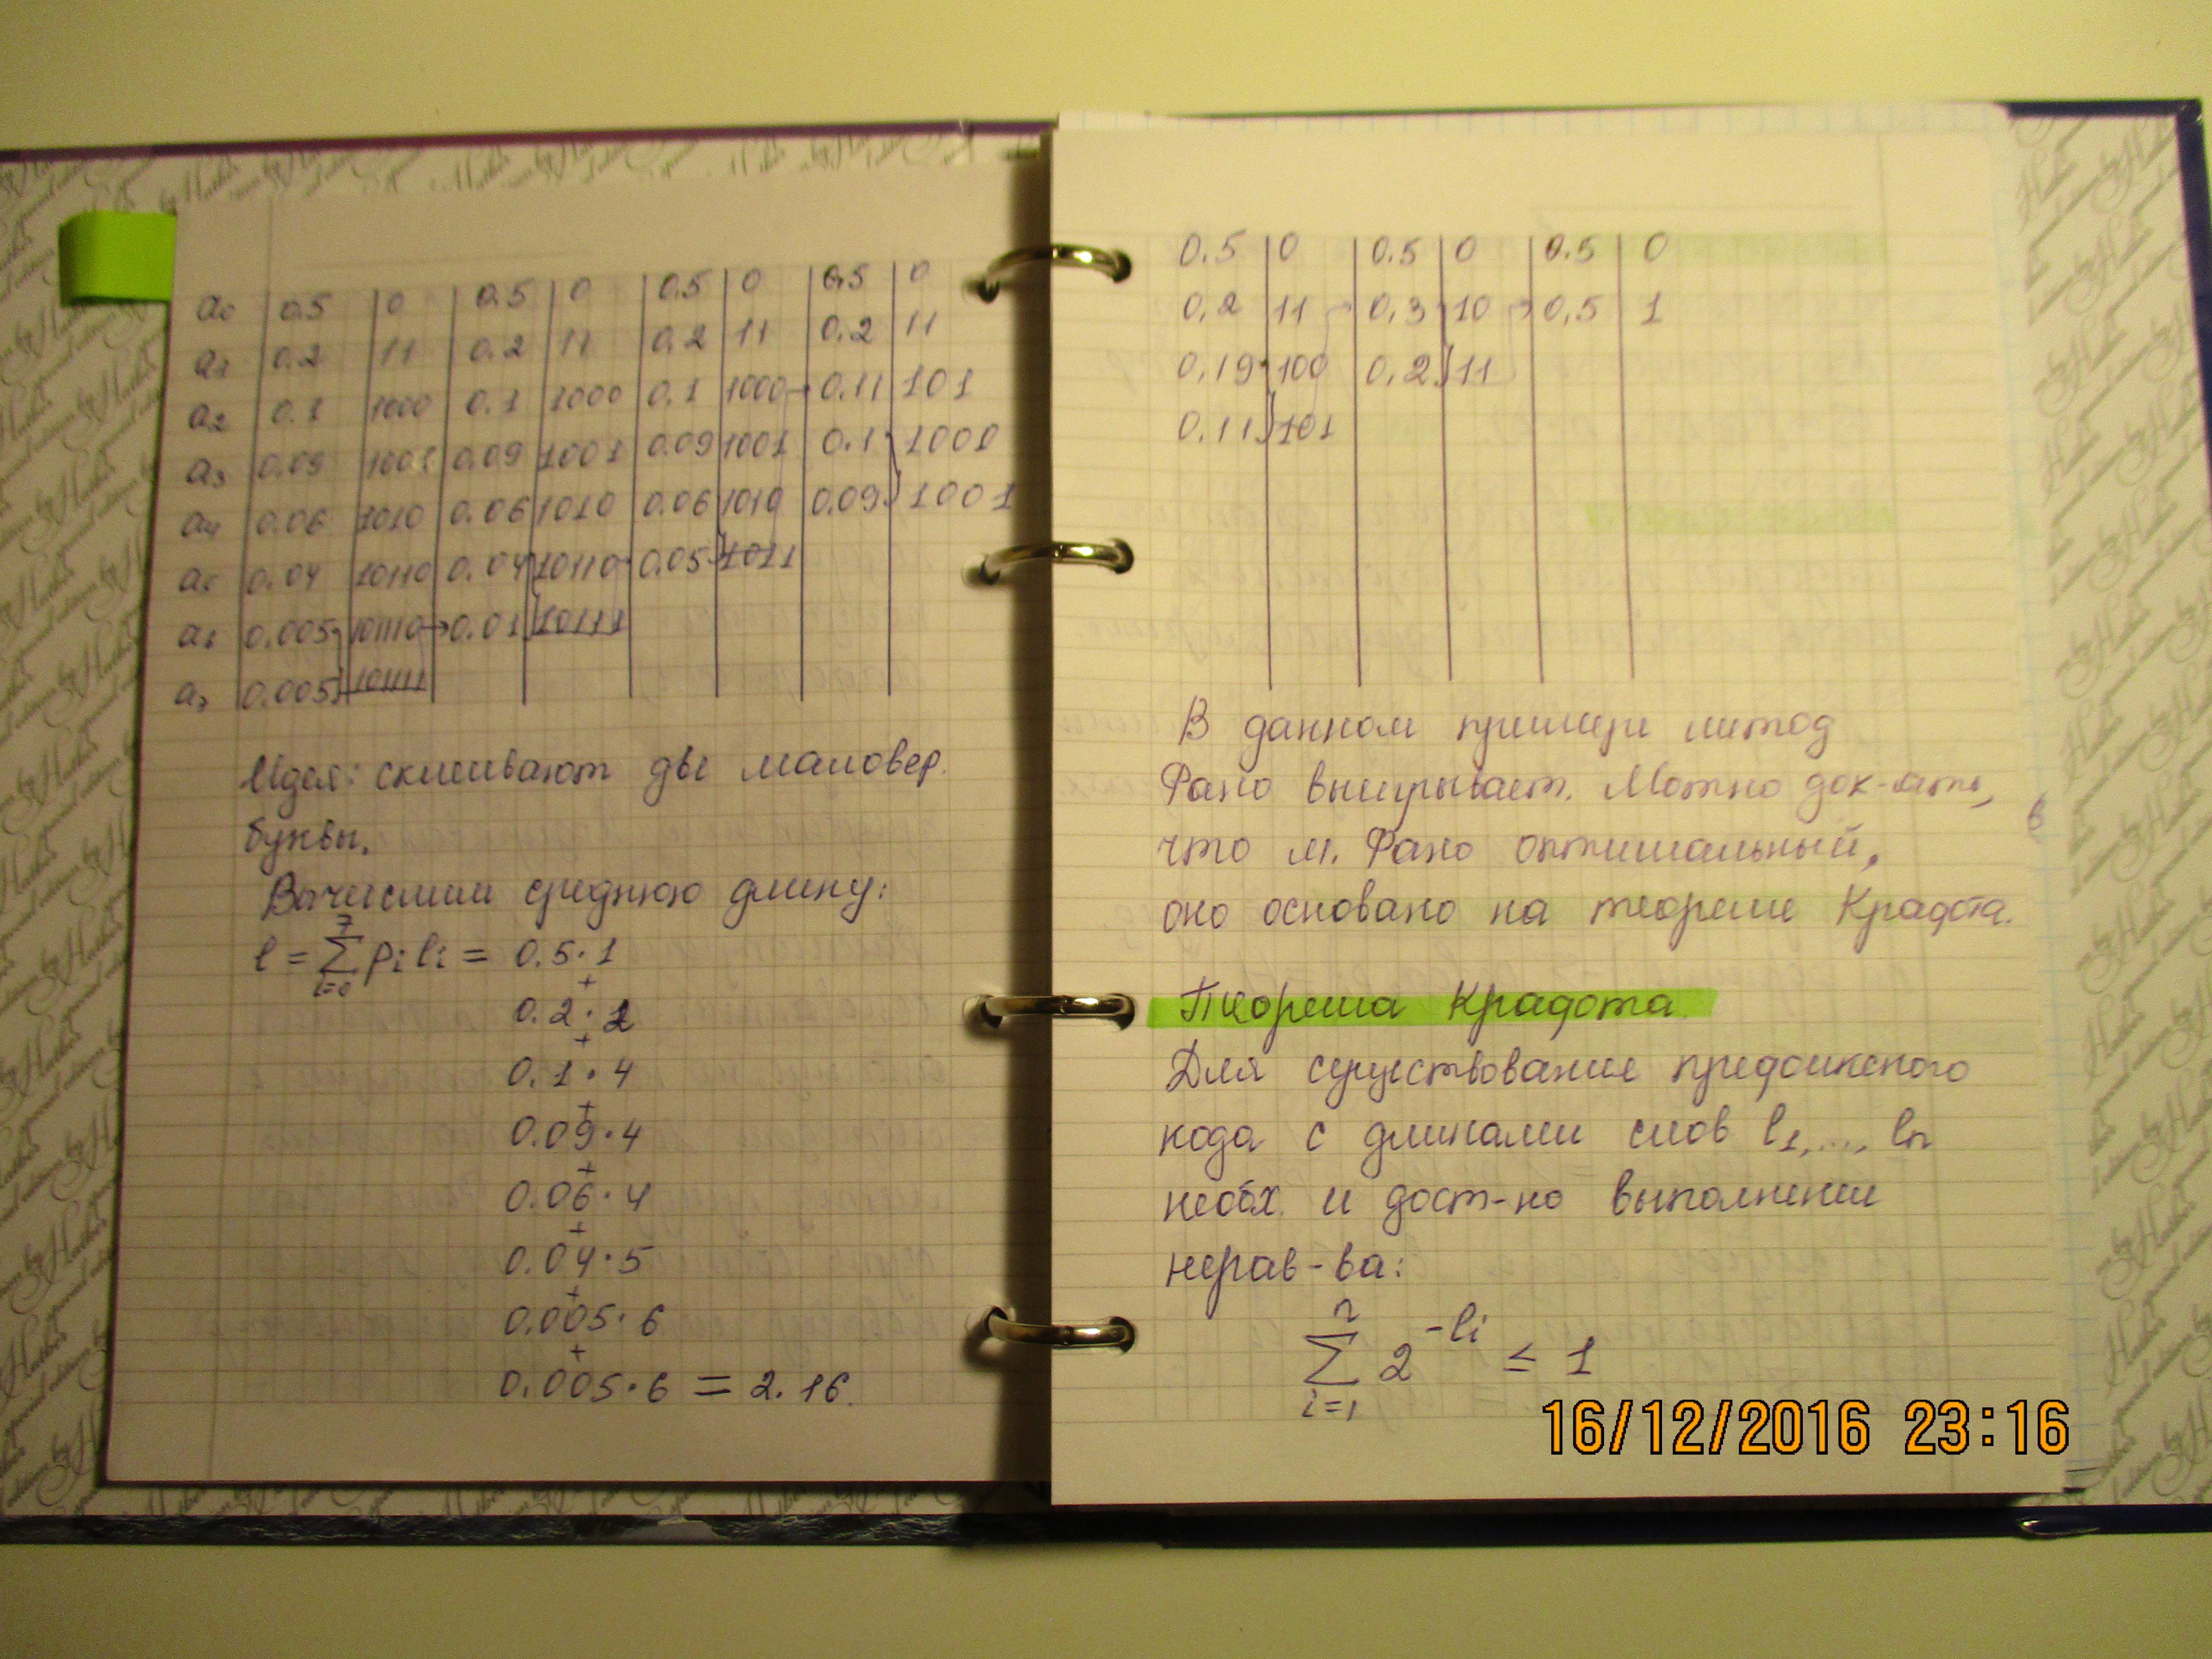 a0 0.5 0 0.5 0 0.5 0 0.5 0
a1 0.2 11 0.2 11 0.2 11 0.2 11
a2 0.1 1000 0.1 1000 0.1 1000 → 0.11 101
a3 0.09 1001 0.09 1001 0.09 1001 0.1 1000
a4 0.06 1010 0.06 1010 0.06 1010 0.09 1001
a5 0.04 10110 0.04 10110 0.05 1011
a6 0.005 101110 → 0.01 10111
a7 0.005 101111
Идея: склеивают две маловер.
буквы.
Вычислим среднюю длину:
l = Σ pi li = 0.5·1
i=0
7
+
0.2·2
+
0.1·4
+
0.09·4
+
0.06·4
+
0.04·5
+
0.005·6
+
0.005·6 = 2.16.
0.5 0 0.5 0 0.5 0
0,2 11 → 0,3 10 → 0,5 1
0,19 100 0,2 11
0.11 101
В данном примере метод
Фано выигрывает. Можно док-ать,
что м. Фано оптимальный,
оно основано на теореме Крафта.
Теорема Крафта.
Для существования префиксного
кода с длинами слов l1, ..., ln
необх. и дост-но выполнение
нерав-ва:
n
Σ 2^-li ≤ 1
i=1
16/12/2016 23:16